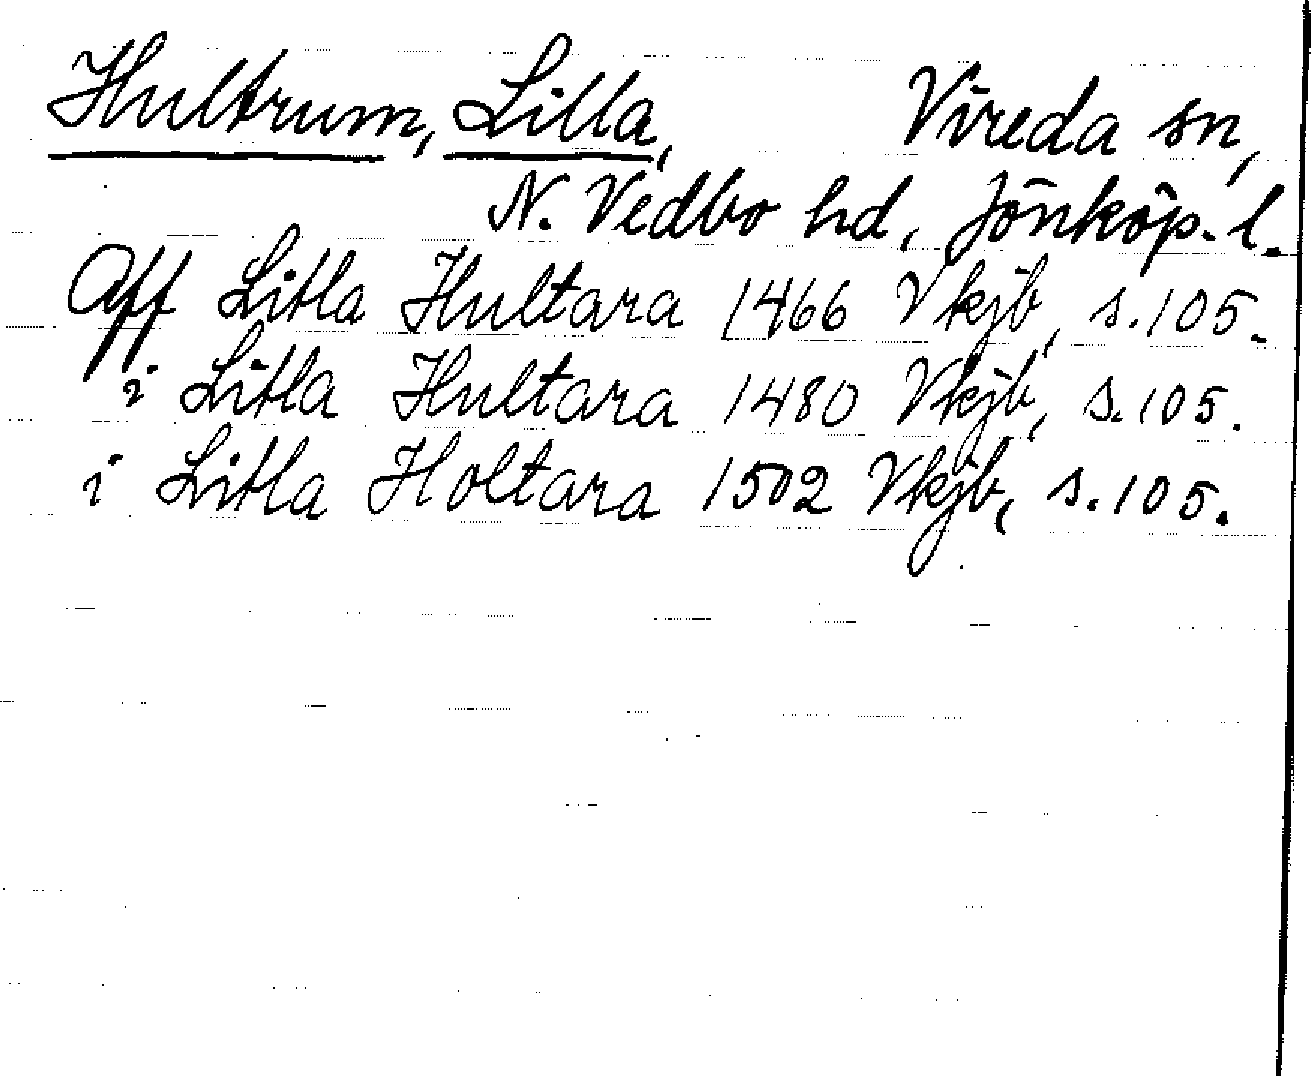 Hultrum, Lilla, Vireda sn,
N. Vedbo hd, Jönköp. l.
Aff Litla Hultara 1466 Vkjb, s. 105.
i Litla Hultara 1480 Vkjb, s. 105.
i Litla Holtara 1502 Vkjb, s. 105.